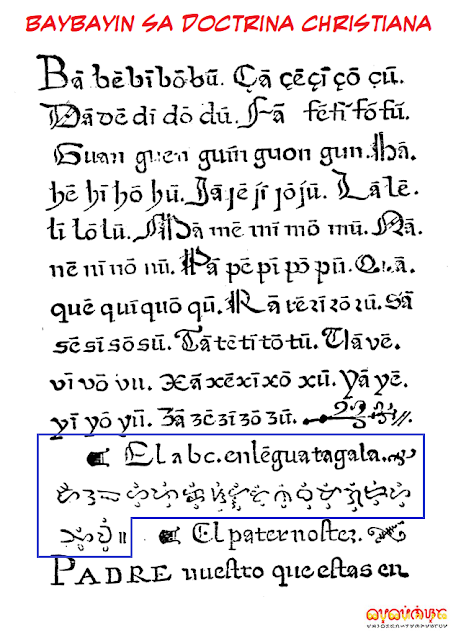 BAYBAYIN SA DOCTRINA CHRISTIANA
Bā bē bī bō bū. Çā çē çī çō çū.
Dā dē dī dō dū. Fā fē fī fō fū.
Guan guen guin guon gun. Hā.
hē hī hō hū. Jā jē jī jō jū. Lā lē.
lī lō lū. Mā mē mī mō mū. Nā.
nē nī nō nū. Pā pē pī pō pū. Quā.
quē quī quō qū. Rā rē rī rō rū. Sā
sē sī sō sū. Tā tē tī tō tū. Vā vē.
vī vō vu. Xā xē xī xō xū. Yā yē.
yī yō yū. Zā zē zī zō zū.
El abc. en lēgua tagala.
El pater noster.
PADRE nuestro que estas en